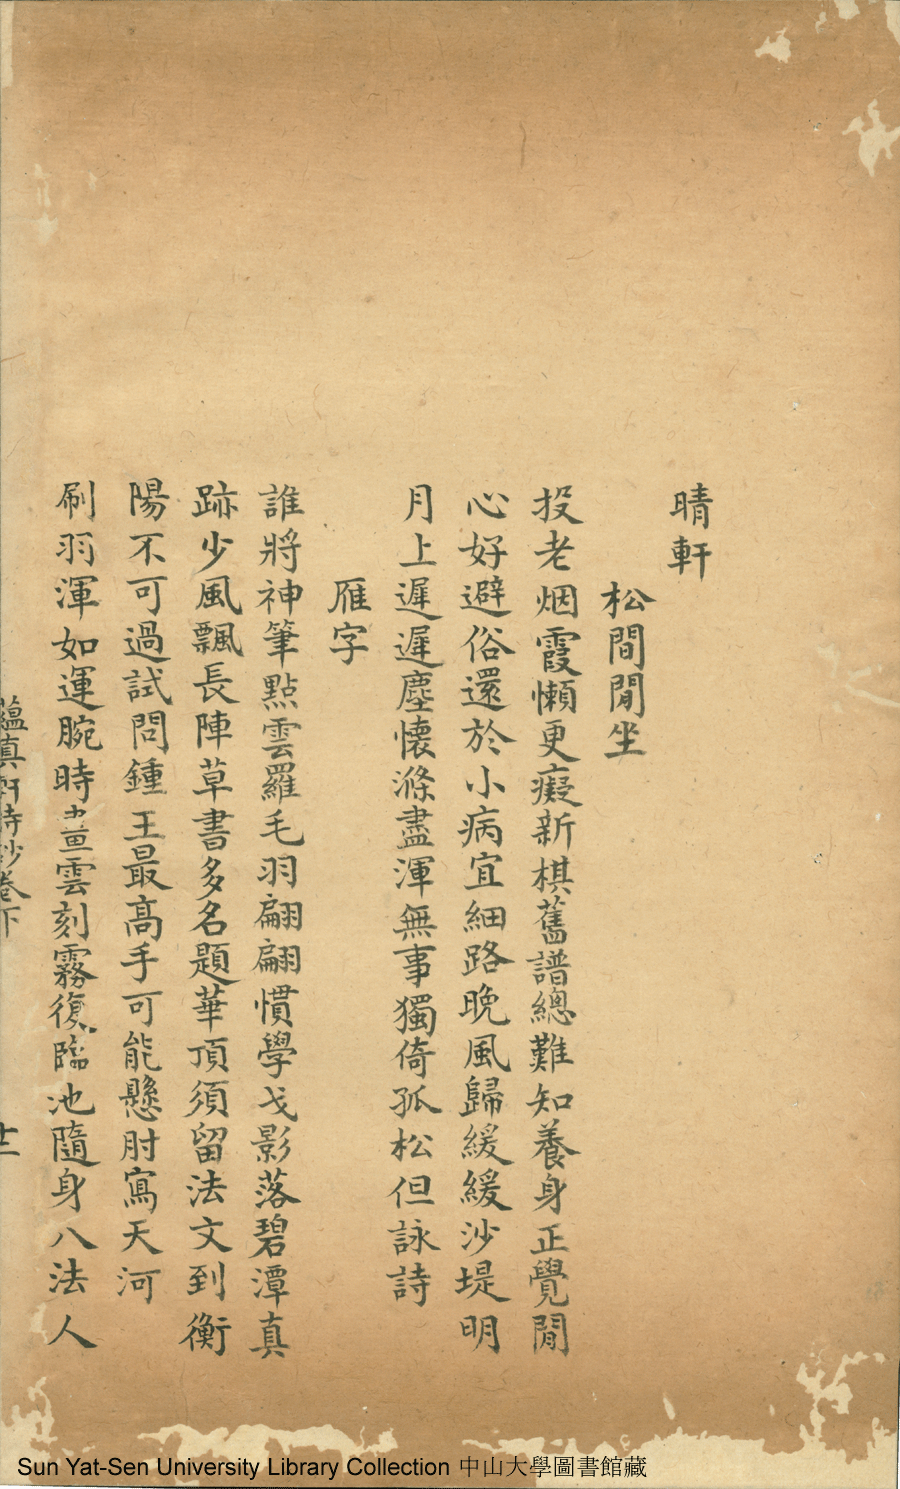 晴軒
松間閒坐
投老烟霞懶更癡新棋舊譜總難知養身正覺閒
心好避俗還於小病宜細路晚風歸緩緩沙堤明
月上遲遲塵懷滌盡渾無事獨倚孤松但詠詩
雁字
誰將神筆點雲羅毛羽翩翩慣學戈影落碧潭真
跡少風飄長陣草書多名題華頂須留法文到衡
陽不可過試問鍾王最高手可能懸肘寫天河
刷羽渾如運腕時畫雲刻霧復臨池隨身八法人
蘊真軒詩鈔卷下
十二
Sun Yat-Sen University Library Collection 中山大學圖書館藏